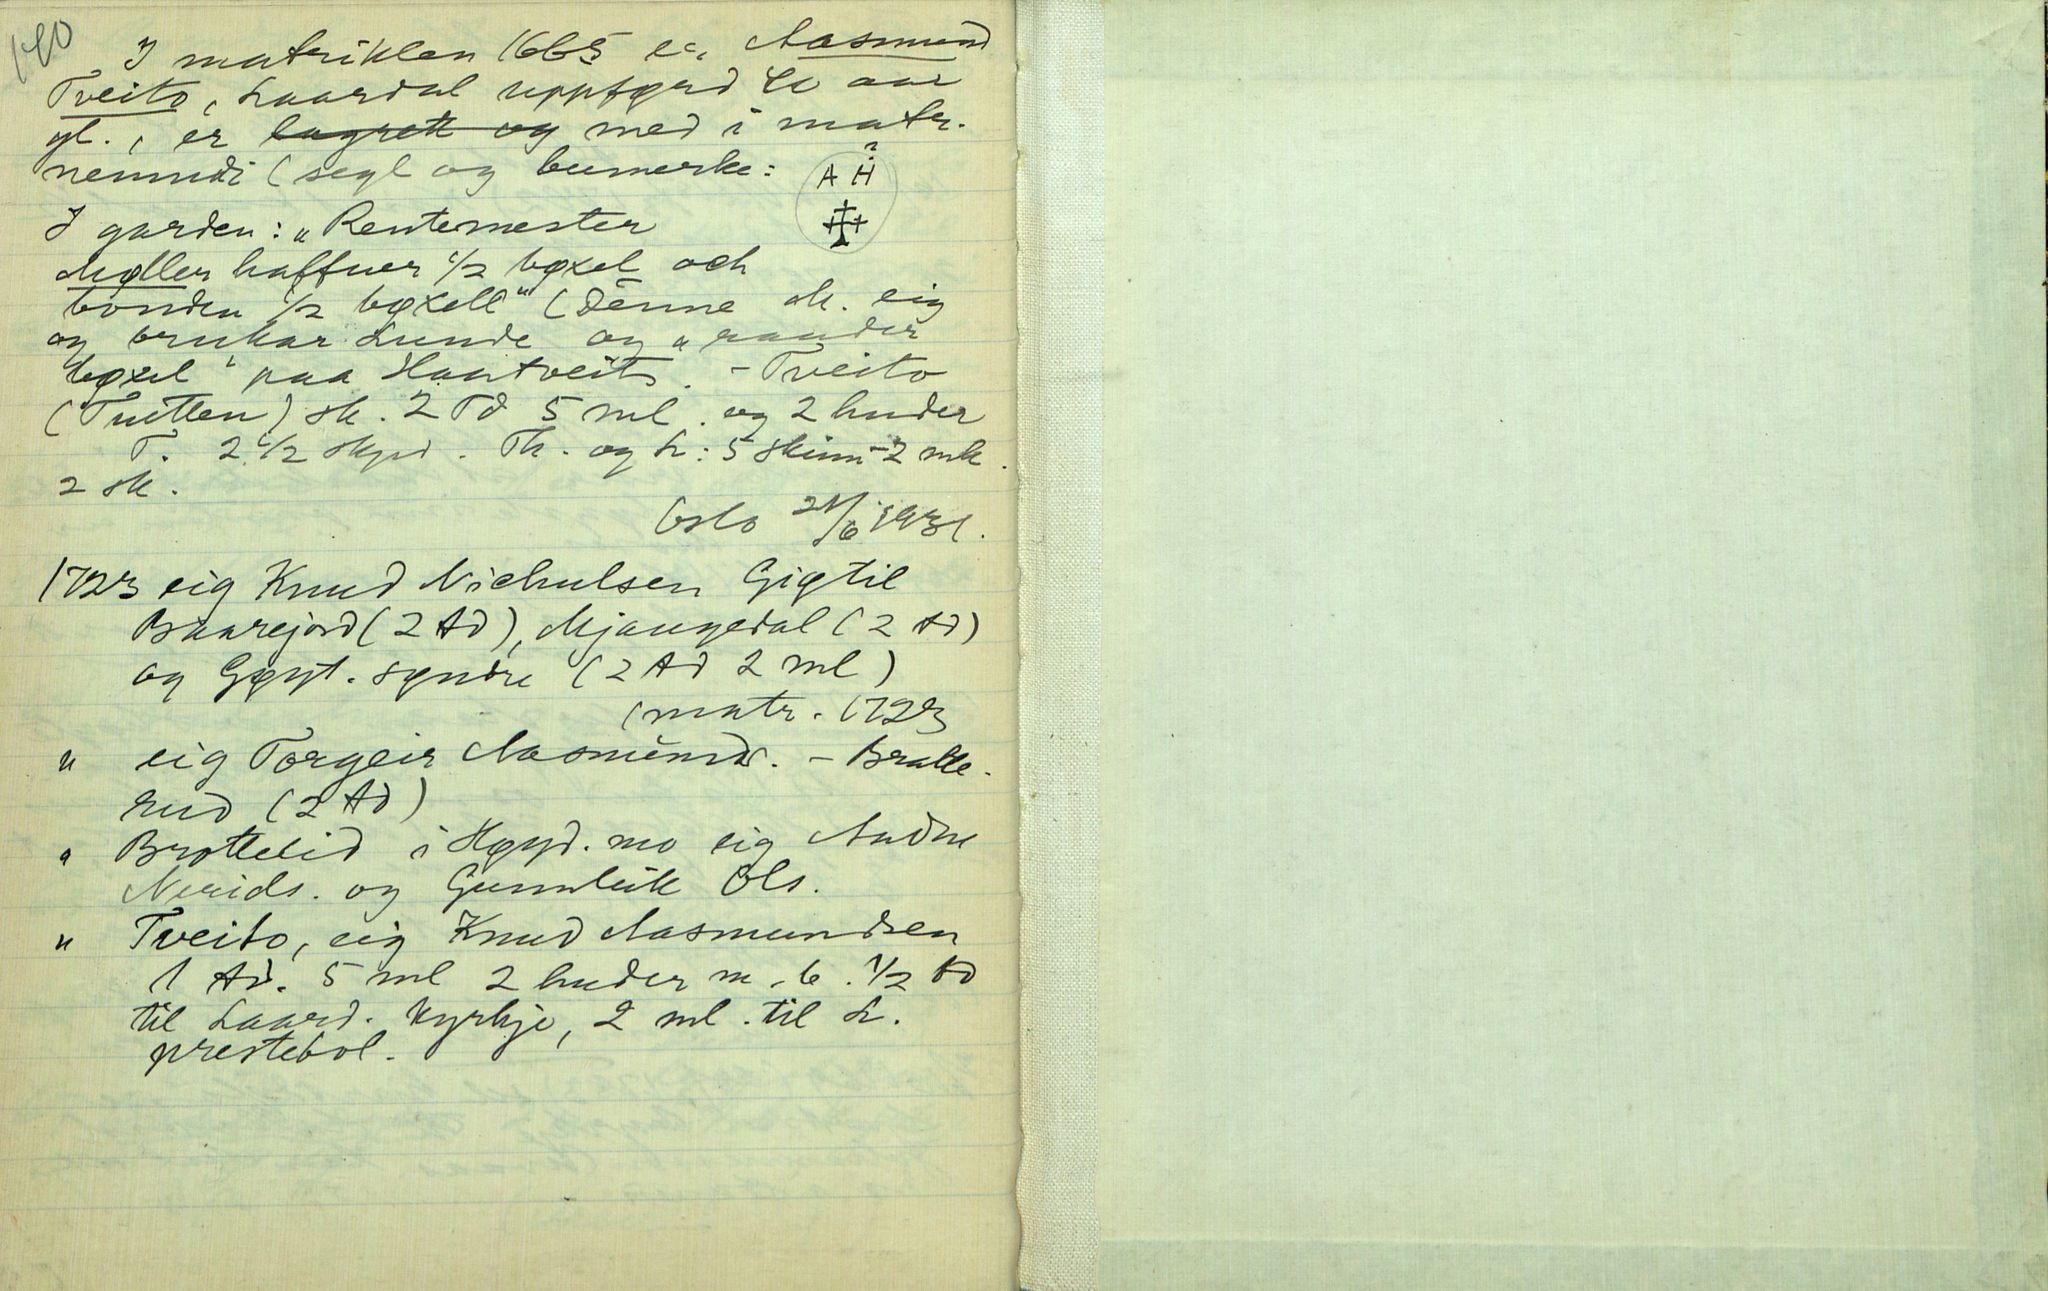 140
I matriklen 1665 er Aasmund
Tveito, Laardal uppførd 40 aar
gl., er lagrett og med i matr.
nemndi (segl og bumerke:
? A H
I garden: „Rentemester
Møller haffuer 1/2 bøxel och
bonden 1/2 bøxell" (Denne sk. eig
og brukar Lunde og „raader
bøxel" paa Haatveit. - Tveito
(Tuitten) sk. 2 Td 5 ml. og 2 huder
T. 2 1/2 Skpd. Th. og L: 5 Skinn - 2 mk.
2 sk.
Oslo 21/6 1931.
1723 eig Knud Nichulsen Gigtil
Baarejord (2 td), Mjaugedal (2 td)
og Gøyt. søndre (2 td 2 ml)
(matr. 1723
" eig Torgeir Aasmunds. - Bratte-
rud (2 td)
" Brøttelid i Høyd. mo eig Audne
Nerids. og Gunnleik Ols.
" Tveito, eig Knud Aasmundsen
1 td. 5 ml 2 huder m. b. 1/2 td
til Laard. kyrkje, 2 ml. til L.
prestebol.